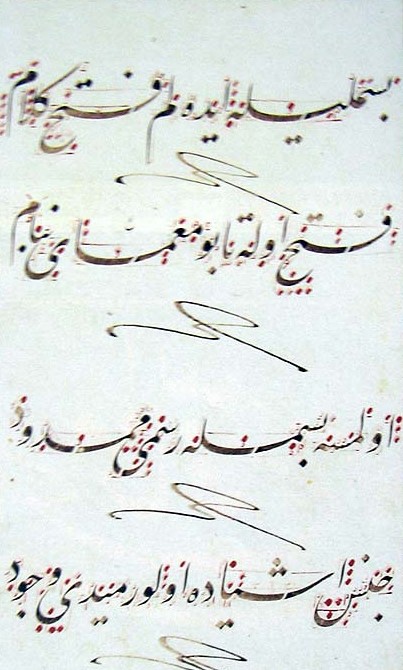 بسملیله ایده لم فتح کلام
فتح اوله تا بو معمای بنام
اولمسه بسمله رسمی ممدود
جنس اشیاده اولورمیدی وجود